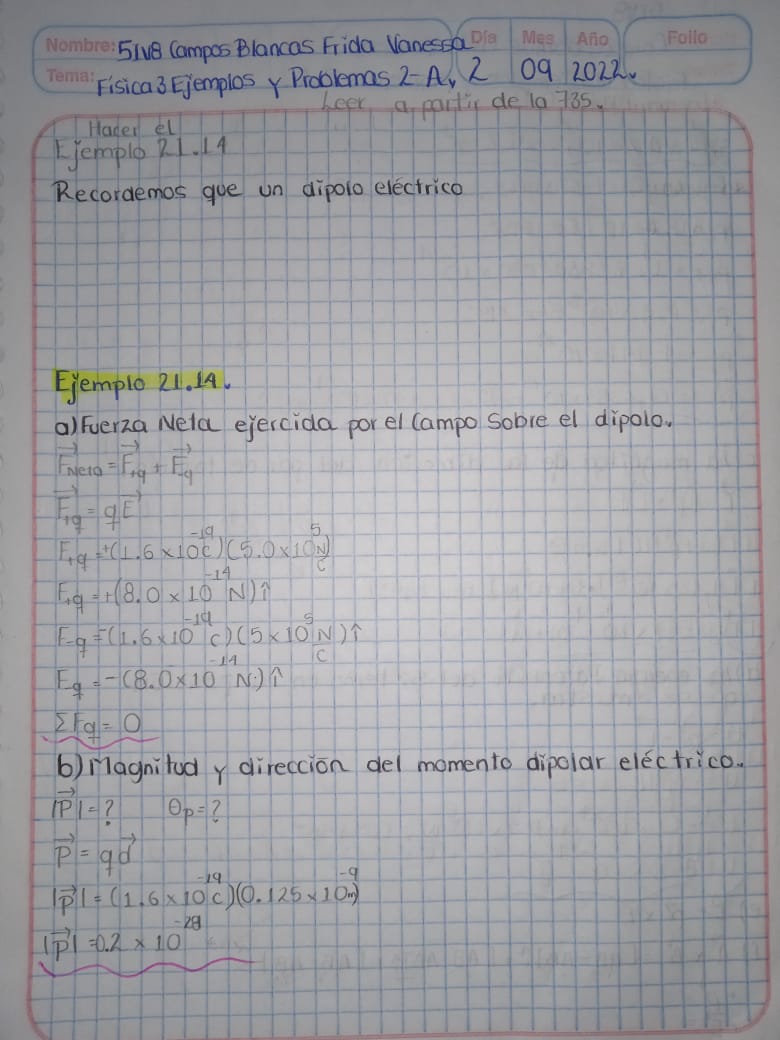 Nombre: 5IV8 Campos Blancas Frida Vanessa Día Mes Año Folio
Tema: Física 3 Ejemplos y Problemas 2-A. 2 09 2022.
Leer a partir de la 735.
Hacer el
Ejemplo 21.14
Recordemos que un dipolo eléctrico
Ejemplo 21.14.
a) Fuerza Neta ejercida por el Campo Sobre el dipolo.
F⃗Neta = F⃗+q + F⃗q
F⃗+q = qE⃗
F+q = +(1.6 × 10⁻¹⁹C)(5.0 × 10⁵ N/C)
F+q = +(8.0 × 10⁻¹⁴ N)↑
F-q = -(1.6 × 10⁻¹⁹ C)(5 × 10⁵ N/C)↑
Fq = -(8.0 × 10⁻¹⁴ N)↑
ΣFq = 0
b) Magnitud y dirección del momento dipolar eléctrico.
|P⃗| = ? Θp = ?
P⃗ = qd⃗
|p⃗| = (1.6 × 10⁻¹⁹C)(0.125 × 10⁻⁹m)
|p⃗| = 0.2 × 10⁻²⁸